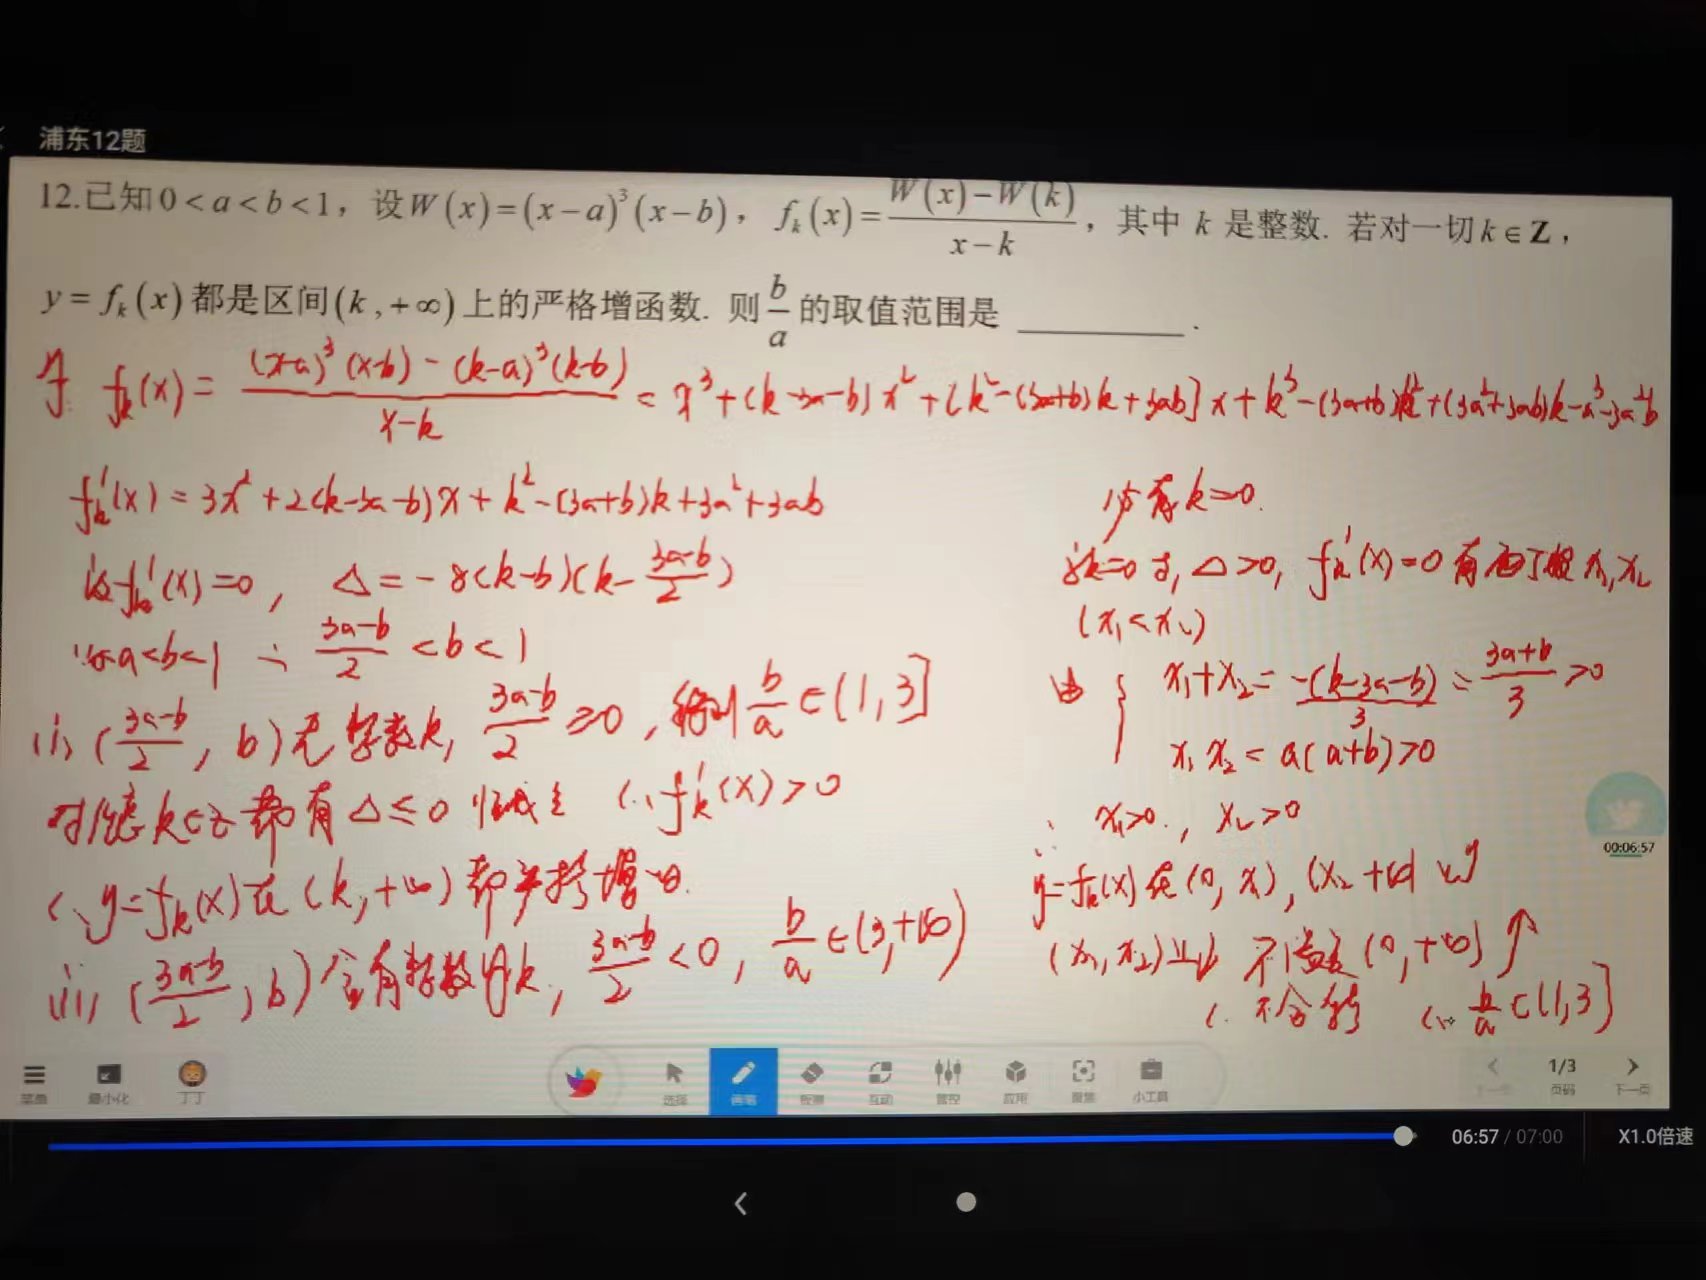 浦东12题
12.已知0<a<b<1，设W(x)=(x-a)³(x-b)，f_k(x)=\frac{W(x)-W(k)}{x-k}，其中 k 是整数. 若对一切k∈Z，
y=f_k(x)都是区间(k,+∞)上的严格增函数. 则\frac{b}{a}的取值范围是 ________.
f_k(x) = \frac{(x-a)³(x-b)-(k-a)³(k-b)}{x-k} = x³+(k-3a-b)x²+[k²-(3a+b)k+3ab]x+k³-(3a+b)k²+(3a²+3ab)k-a³-3a²b
f_k'(x)=3x²+2(k-3a-b)x+k²-(3a+b)k+3a²+3ab
设f_k'(x)=0, Δ=-8(k-b)(k-\frac{3a-b}{2})
a<b<1 ∴ \frac{3a-b}{2}<b<1
(i) (\frac{3a-b}{2}, b)无整数k, \frac{3a-b}{2}≥0, 得到\frac{b}{a}∈(1,3]
对任意k∈Z都有Δ≤0恒成立 ∴ f_k'(x)>0
∴ y=f_k(x)在(k,+∞)都严格增
(ii) (\frac{3a-b}{2}, b)含有整数k, \frac{3a-b}{2}<0, \frac{b}{a}∈(3,+∞)
有k=0.
k=0时, Δ>0, f_k'(x)=0有两个根x₁,x₂
(x₁<x₂)
由{ x₁+x₂=\frac{-(k-3a-b)}{3}=\frac{3a+b}{3}>0
x₁x₂=a(a+b)>0
∴ x₁>0, x₂>0
y=f_k(x)在(0,x₁),(x₂+∞)
(x₁,x₂) 不满足(0,+∞)↑
∴ 不合 ∴ \frac{b}{a}∈(1,3]
00:06:57
菜单
最小化
丁丁
选择
画笔
板擦
互动
管控
应用
聚焦
小工具
1/3
页码
下一页
06:57 / 07:00
X1.0倍速